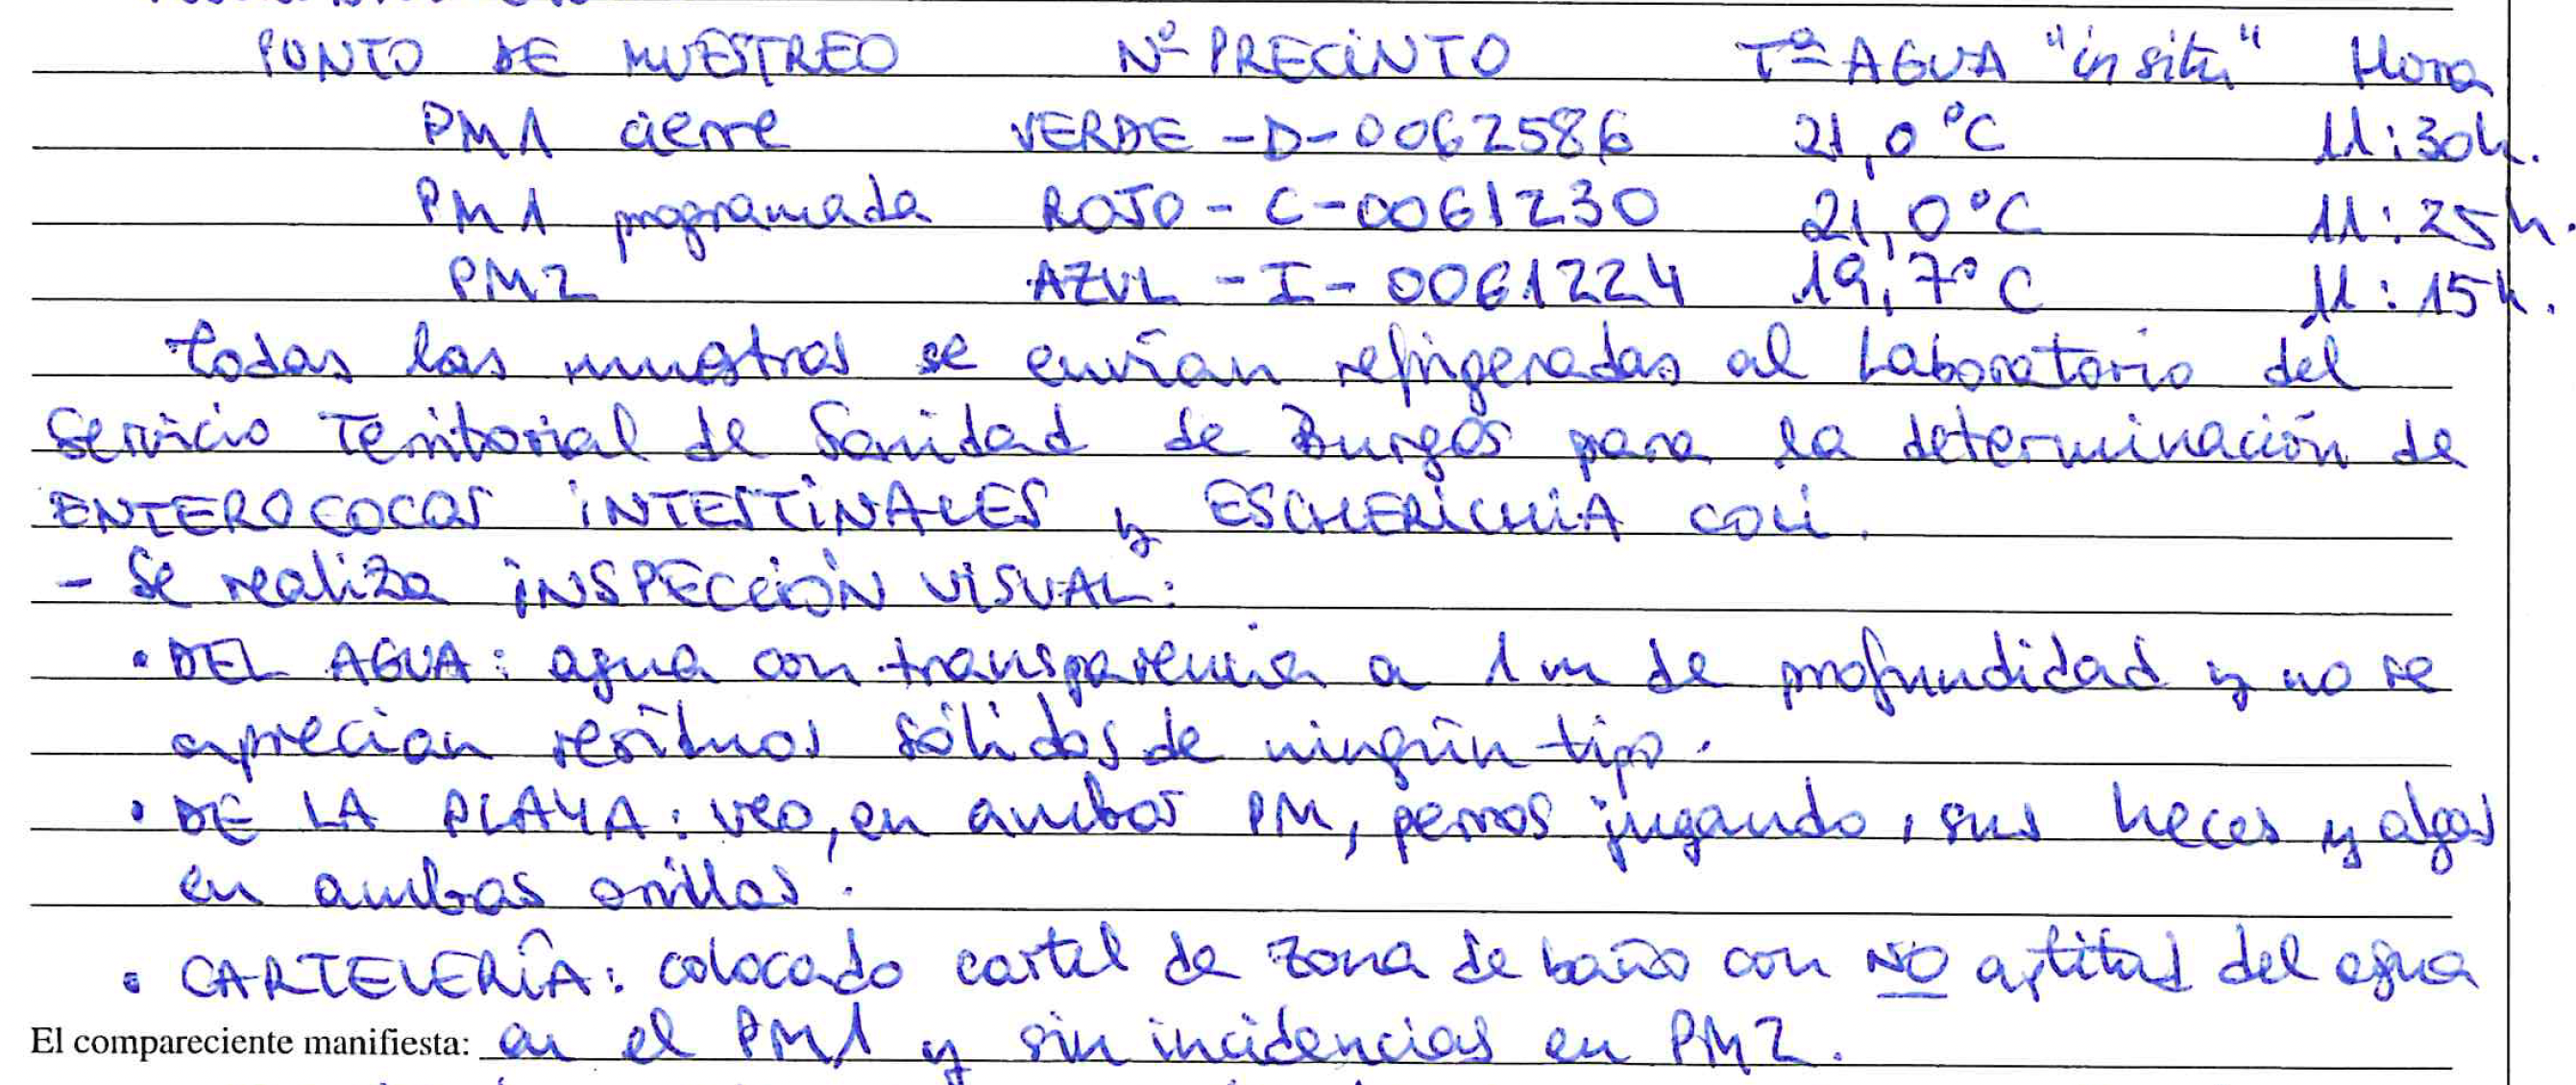 PUNTO DE MUESTREO Nº PRECINTO Tª AGUA "in situ" Hora
PM1 cierre VERDE-D-0062586 21,0°C 11:30h.
PM1 programada ROJO-C-0061230 21,0°C 11:25h.
PM2 AZUL-I-0061224 19,7°C 11:15h.
todas las muestras se envían refrigeradas al Laboratorio del
Servicio Territorial de Sanidad de Burgos para la determinación de
ENTEROCOCOS INTESTINALES y ESCHERICHIA coli.
- Se realiza INSPECCIÓN VISUAL:
• DEL AGUA: agua con transparencia a 1 m de profundidad y no se
aprecian residuos sólidos de ningún tipo.
• DE LA PLAYA: veo, en ambos PM, perros jugando, sus heces y algas
en ambas orillas.
• CARTELERÍA: colocado cartel de zona de baño con NO aptitud del agua
El compareciente manifiesta: en el PM1 y sin incidencias en PM2.